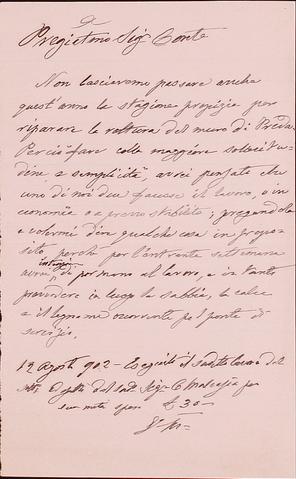 Pregiatmo Sigr Conte
Non lasciavamo passare anche
quest'anno la stagione propizia per
riparare la rottura del muro di
Per ciò fare colla maggiore sollecitu
dine, e semplicità, avrei pensato che
uno di noi due facesse il lavoro, o in
economia o a prezzo stabilito; pregandola
a volermi dire qualche cosa in propo
sito perchè per l'entrante settimana
avrei intenzione di por mano al lavoro, e intanto
provvedere in luogo la sabbia, la calce
e il legname occorrente pel ponte di
servizio.
12 Agosto 902 - Eseguito il sudto lavoro del
Sigr C per
sua metà spesa £ 30 -